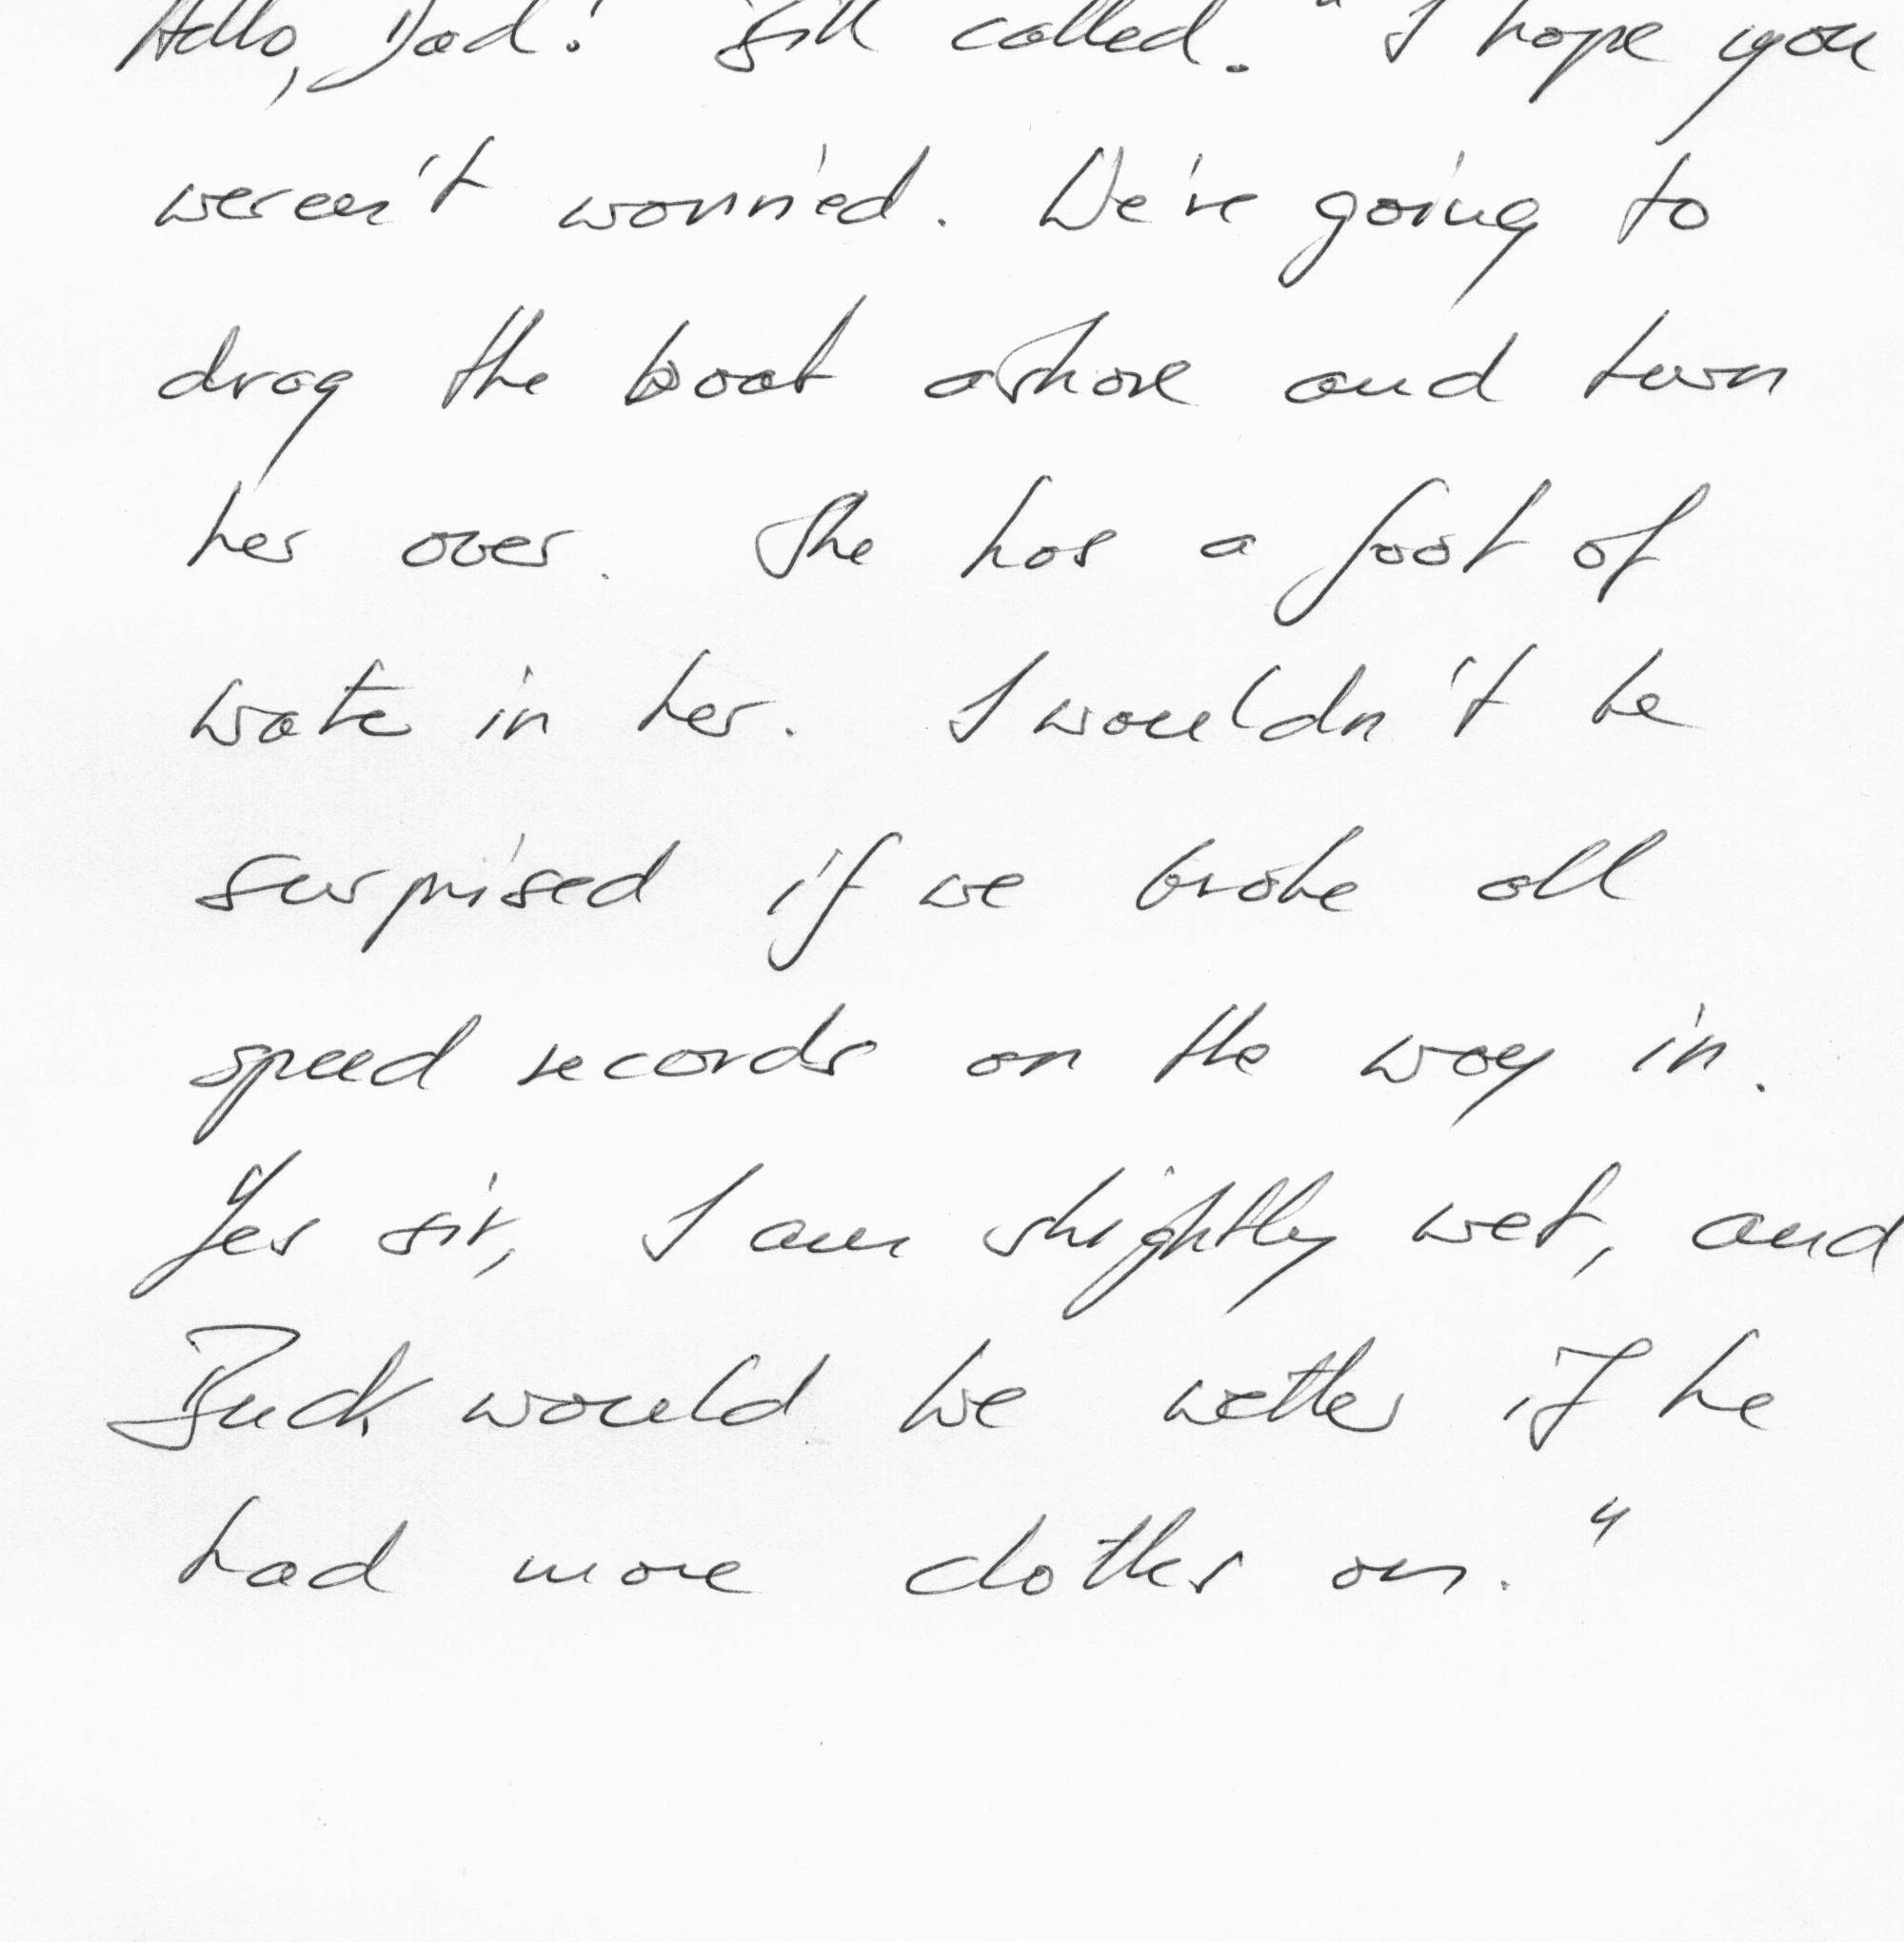 Hello, Dad! Bill called. "I hope you
weren't worried. We're going to
drag the boat ashore and turn
her over. She has a foot of
water in her. I wouldn't be
surprised if we broke all
speed records on the way in.
Yes sir, I am slightly wet, and
Buck would be wetter if he
had more clothes on."